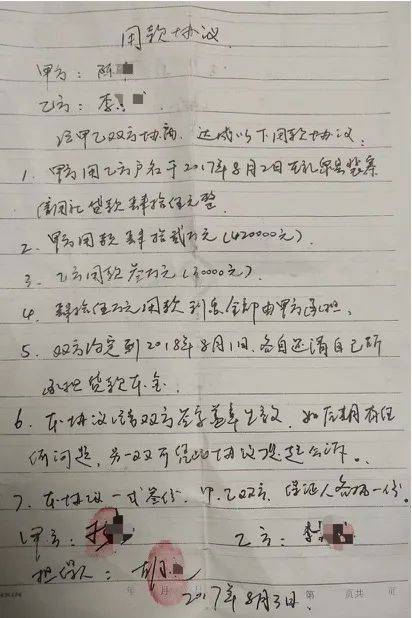 用款协议
甲方：陈
乙方：李
经甲乙双方协商，达成以下用款协议：
1、甲方用乙方户名于2017年8月2日在礼泉县
信用社贷款肆拾伍元整
2、甲方用款肆拾贰万元（420000元）
3、乙方用款叁万元（30000元）
4、肆拾伍万元用款利息全部由甲方承担。
5、双方约定到2018年8月1日，各自还清自己所
承担贷款本金
6、本协议经双方签字盖章生效，如后期有任
何问题，另一双可凭此协议提起公诉。
7、本协议一式叁份，甲、乙双方、保证人各持一份。
甲方： 乙方：李
担保人：
年 月 第 页共 页
2017年8月3日